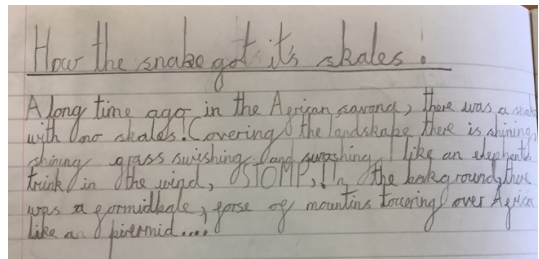 How the snake got it's skales!
A long time ago in the African savana, there was a snake
with no skales. Covering the landskape there is shining,
shining grass swishing and swoshing like an elephants
trink in the wind, STOMP,!! In the bakground, there
was a formidbale, forse of mountins towering over Africa
like a piremid....